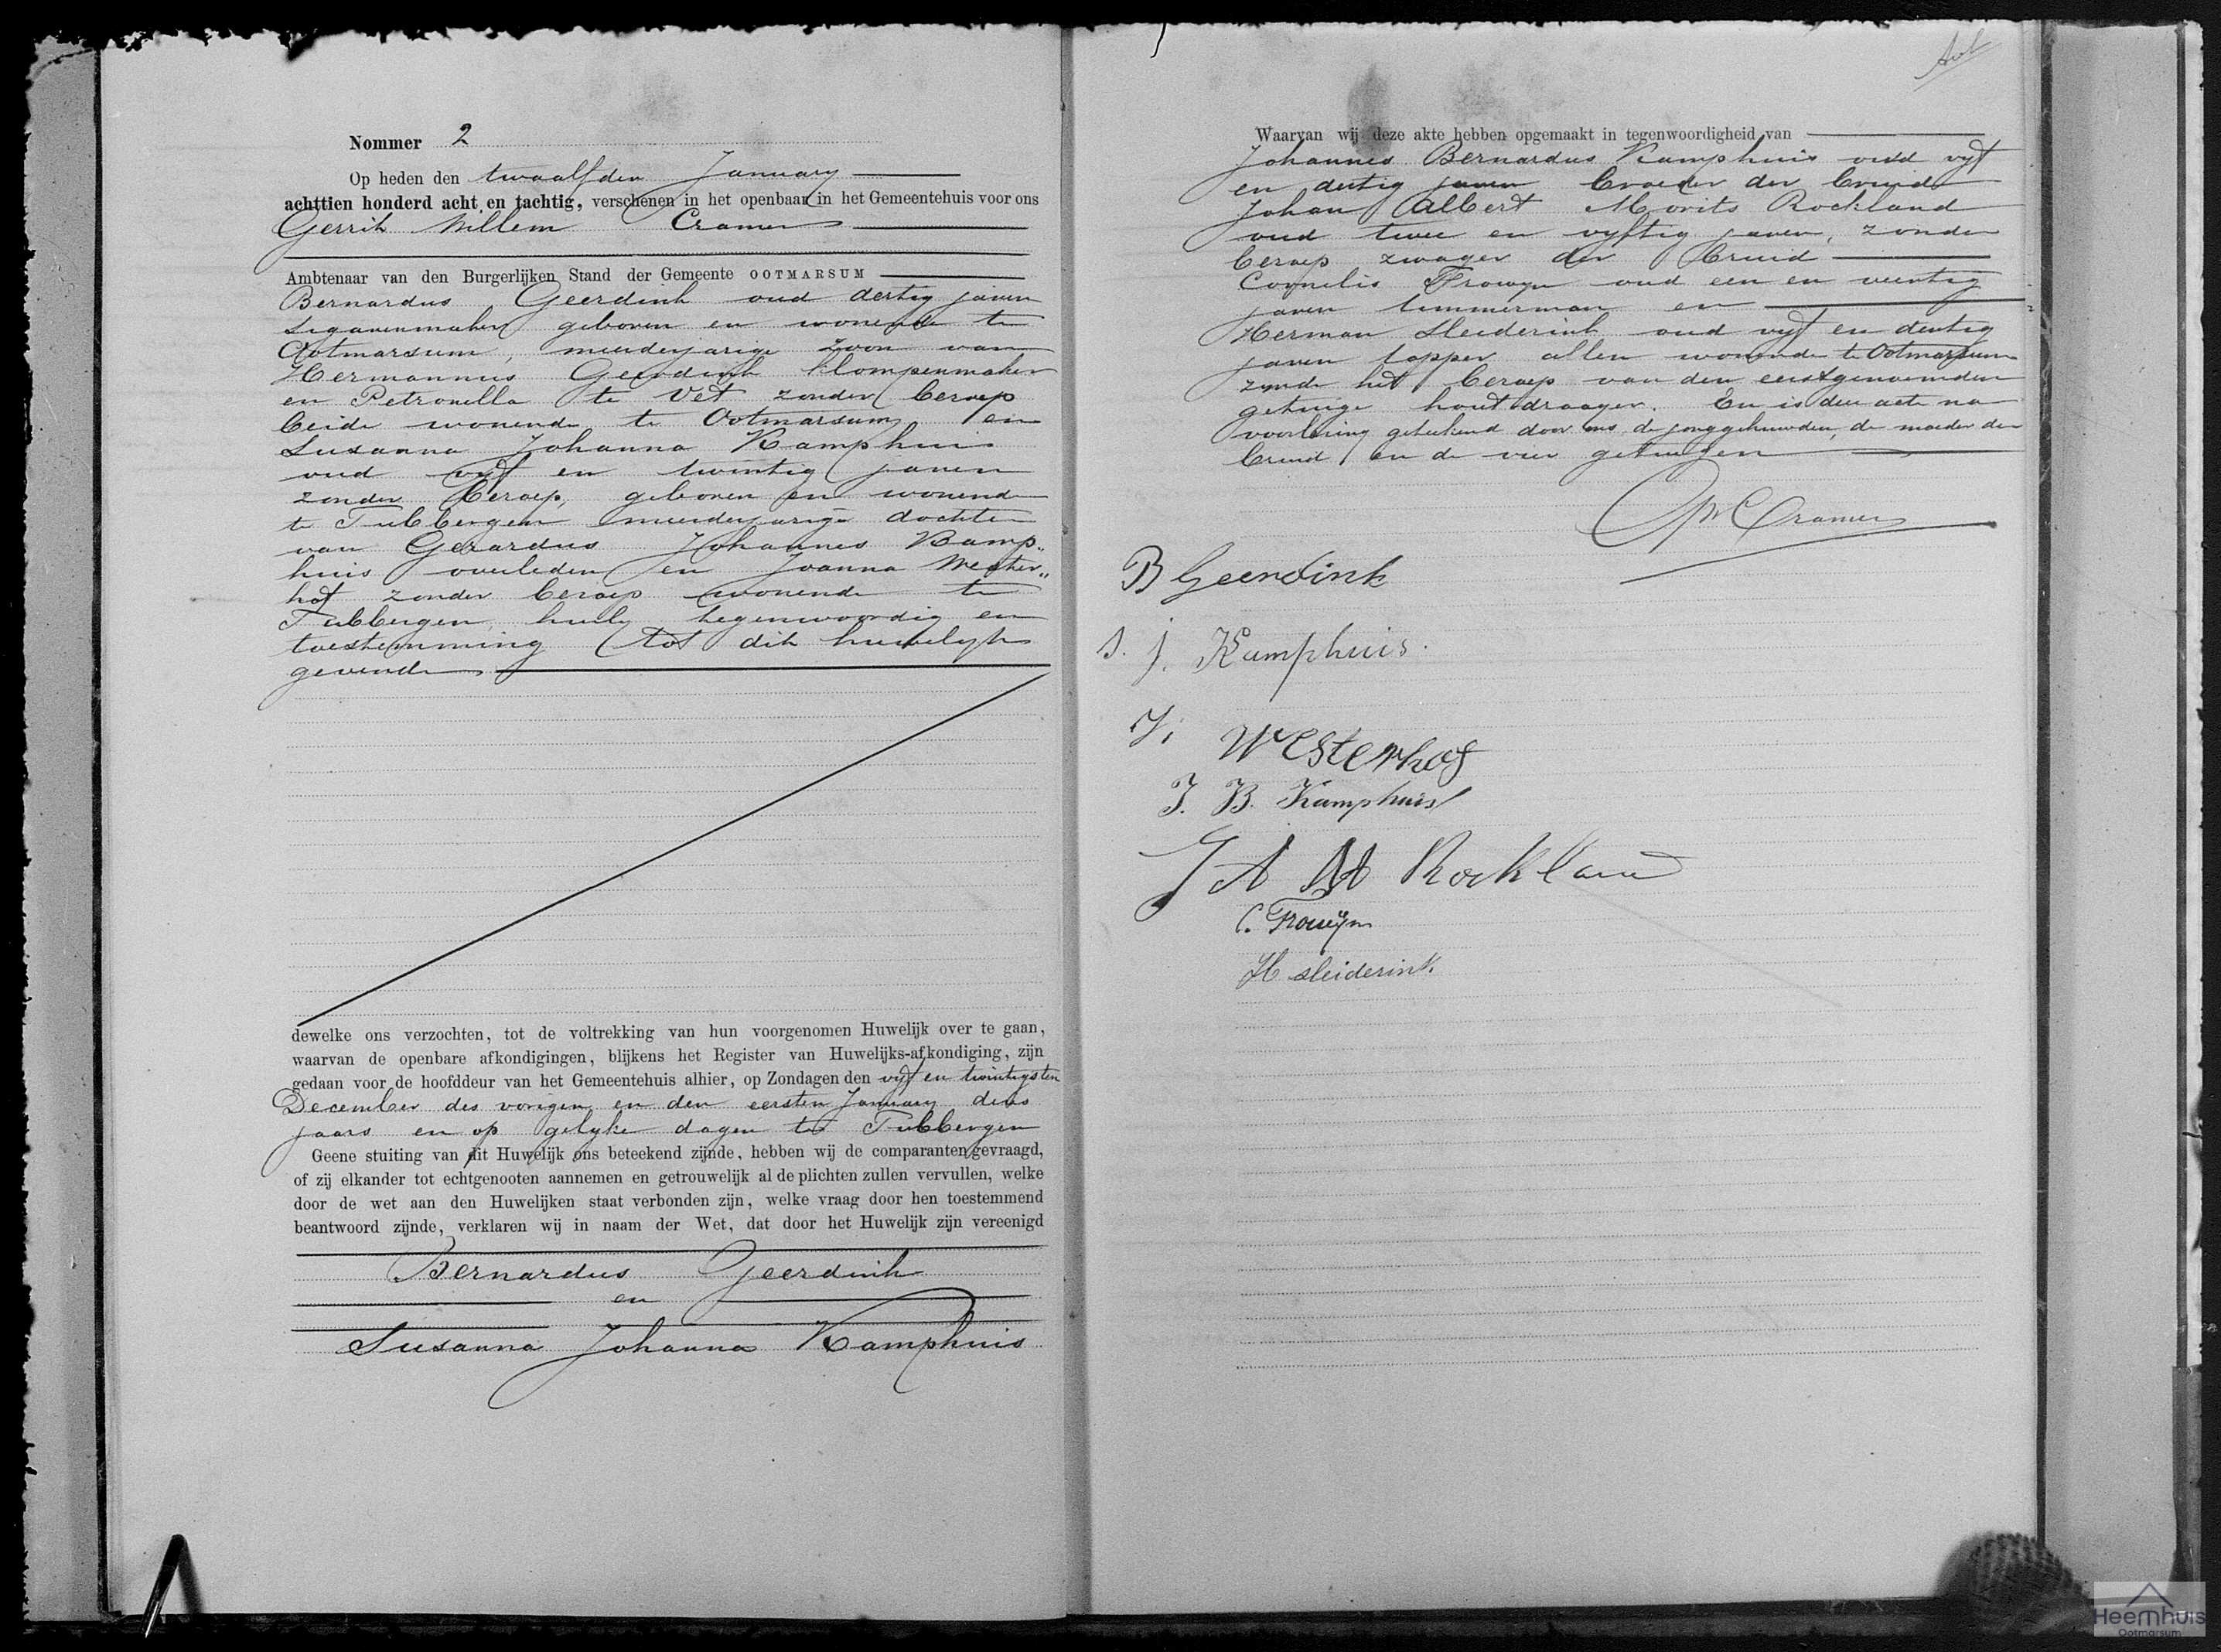 Nommer 2
Op heden den twaalfden January
achttien honderd acht en tachtig, verschenen in het openbaar in het Gemeentehuis voor ons
Gerrit Willem Cramer
Ambtenaar van den Burgerlijken Stand der Gemeente OOTMARSUM
Bernardus Geerdink oud dertig jaren
sigarenmaker geboren en wonende te
Ootmarsum, meerderjarige zoon van
Hermannus Geerdink klompenmaker
en Petronella te Vet zonder beroep
beide wonende te Ootmarsum en
Susanna Johanna Kamphuis
oud vyf en twintig jaren
zonder beroep, geboren en wonende
te Tubbergen meerderjarige dochter
van Gerardus Johannes Kamp„
huis overleden en Joanna Wester„
hof zonder beroep wonende te
Tubbergen, hierby tegenwoordig en
toestemming tot dit huwelyk
gevende
dewelke ons verzochten, tot de voltrekking van hun voorgenomen Huwelijk over te gaan,
waarvan de openbare afkondigingen, blijkens het Register van Huwelijks-afkondiging, zijn
gedaan voor de hoofddeur van het Gemeentehuis alhier, op Zondagen den vyf en twintigsten
December des vorigen en den eersten January dezes
jaars en op gelyke dagen te Tubbergen
Geene stuiting van dit Huwelijk ons beteekend zijnde, hebben wij de comparanten gevraagd,
of zij elkander tot echtgenooten aannemen en getrouwelijk al de plichten zullen vervullen, welke
door de wet aan den Huwelijken staat verbonden zijn, welke vraag door hen toestemmend
beantwoord zijnde, verklaren wij in naam der Wet, dat door het Huwelijk zijn vereenigd
Bernardus Geerdink
en
Susanna Johanna Kamphuis
Waarvan wij deze akte hebben opgemaakt in tegenwoordigheid van
Johannes Bernardus Kamphuis oud vyf
en dertig jaren broeder der bruid
Johan Albert Morits Rockland
oud twee en vyftig jaren, zonder
beroep zwager der bruid
Cornelis Frowyn oud een en veertig
jaren timmerman en
Herman Sleiderink oud vyf en dertig
jaren tapper allen wonende te Ootmarsum
zynde het beroep van den eerstgenoemden
getuige houtdraayer. En is deze acte na
voorlezing geteekend door ons, de jonggehuwden, de moeder der
bruid en de vier getuigen
GW Cramer
B Geerdink
S. J. Kamphuis.
J. Westerhof
J. B. Kamphuis
J A M Rockland
C. Frowijn
H sleiderink.
Heemhuis
Ootmarsum